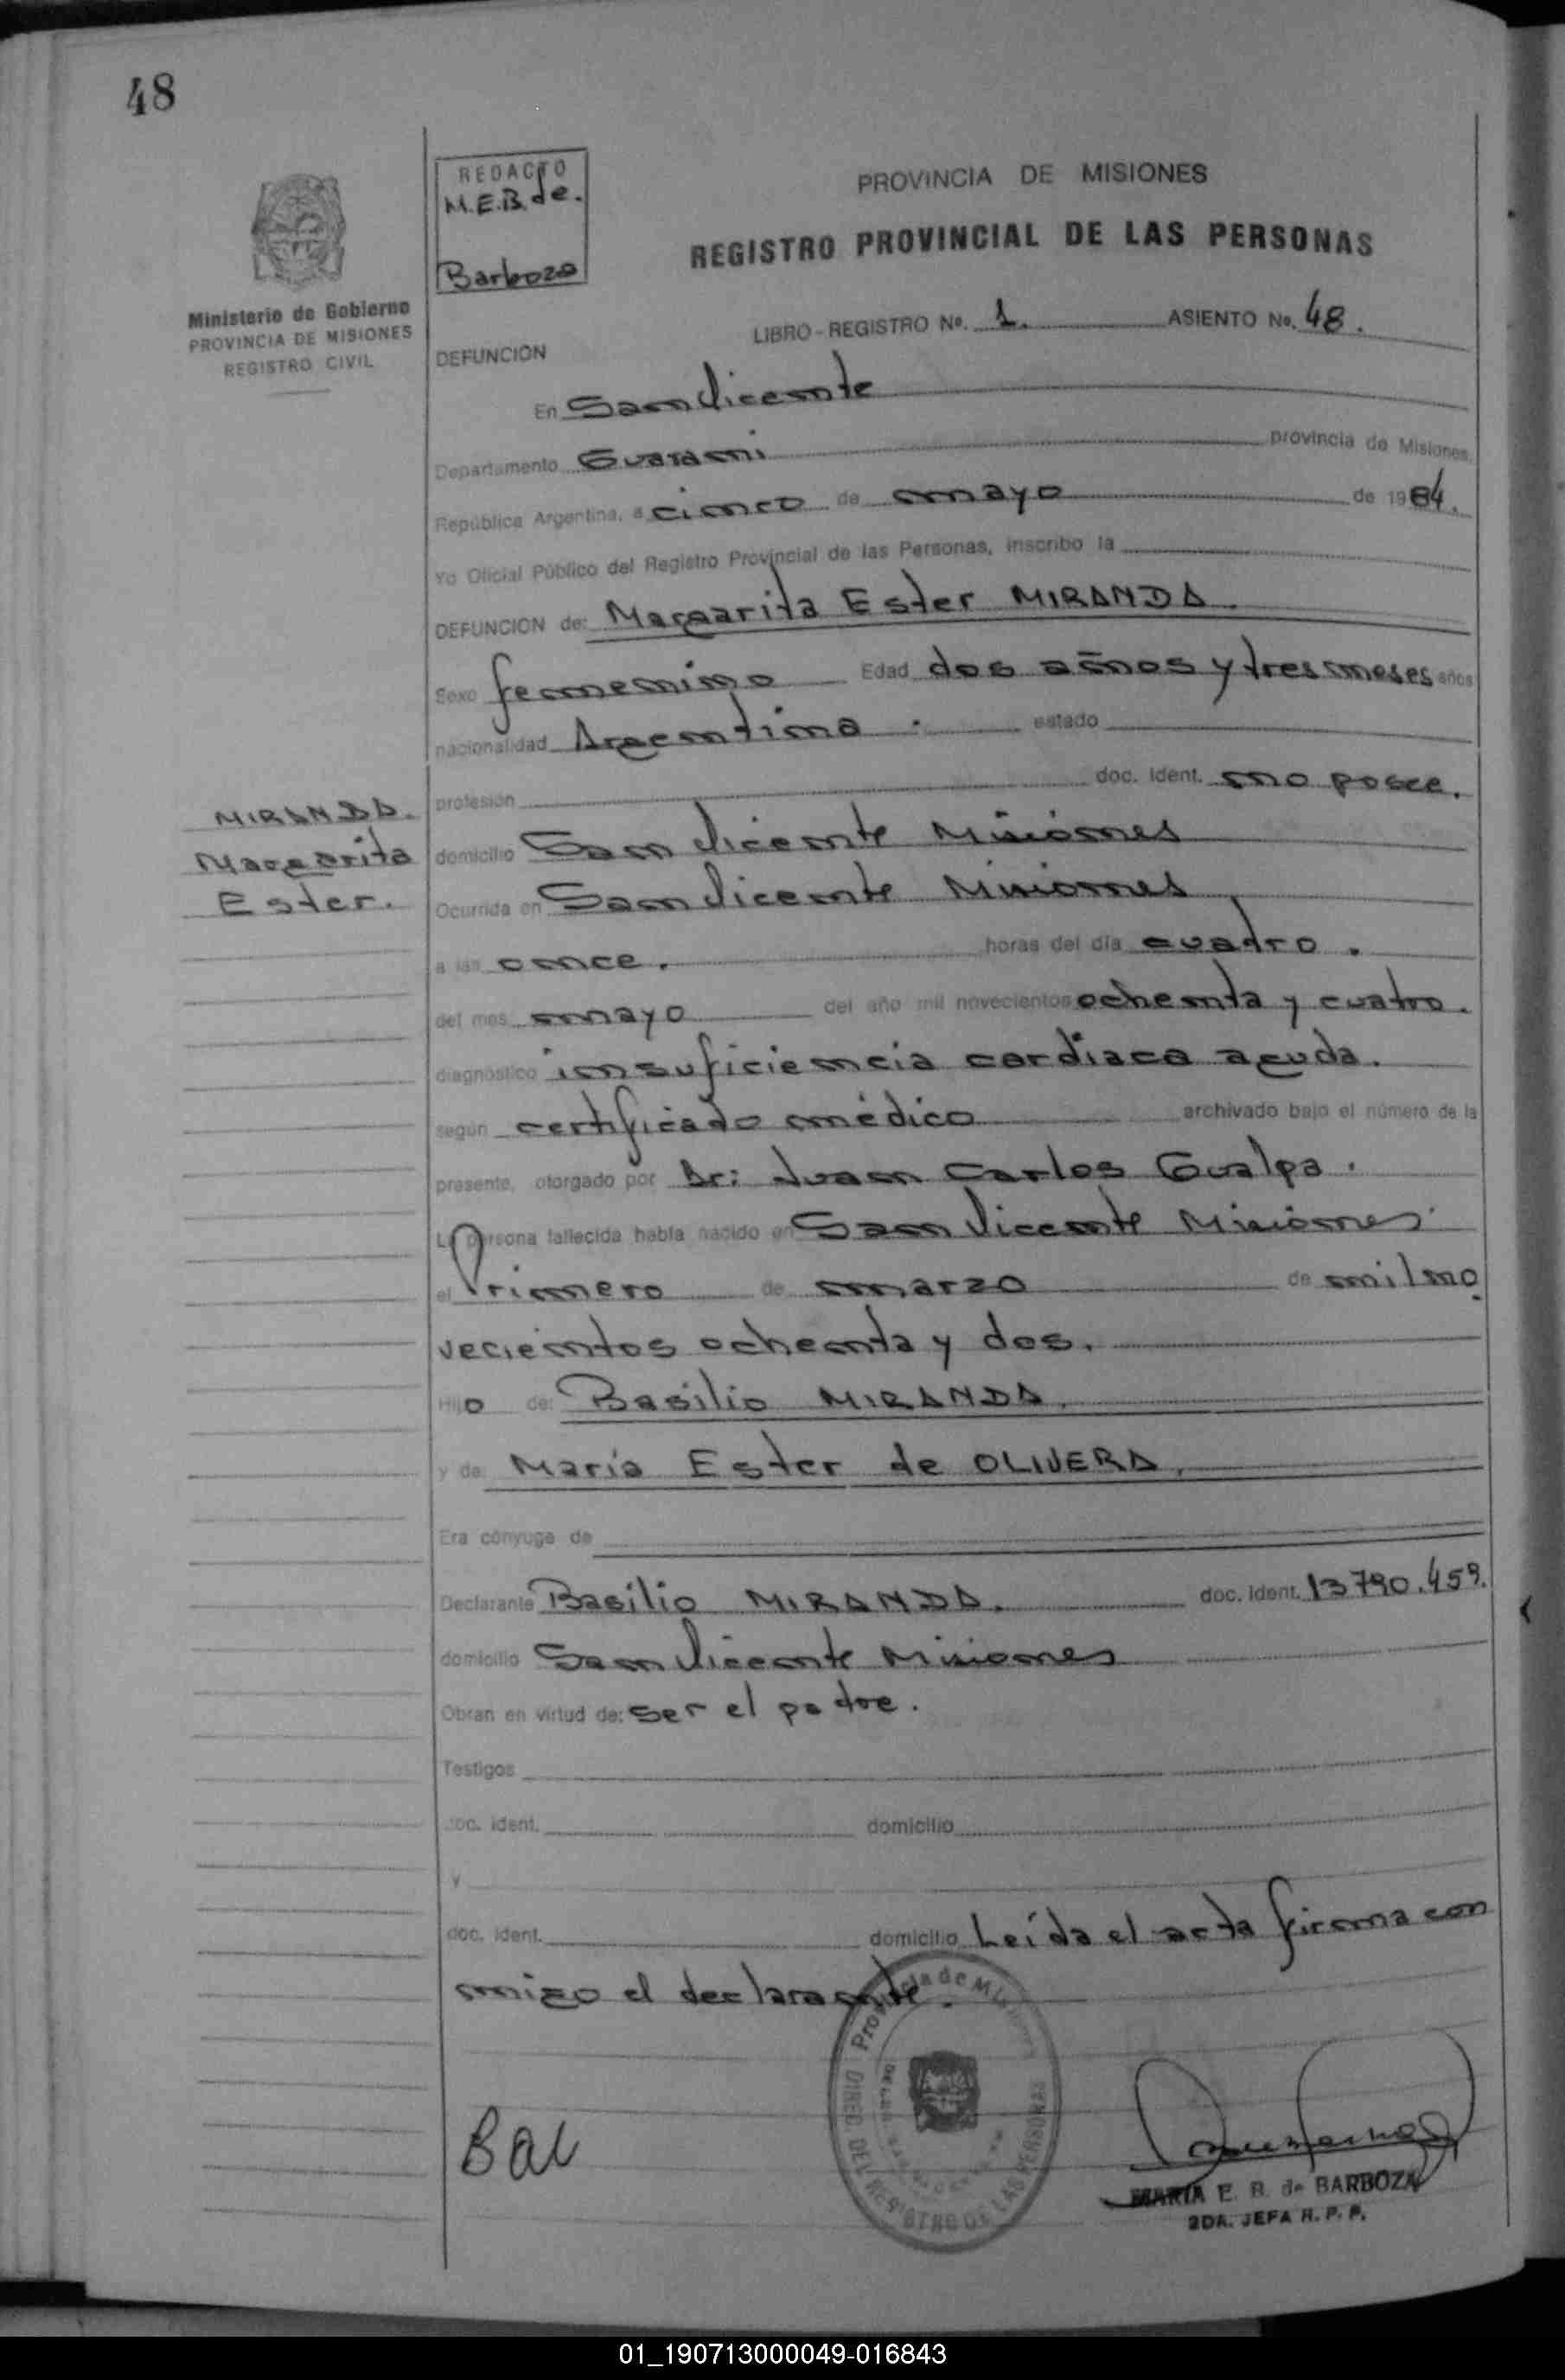 48
REDACTO
M.E.B. de.
Barboza
PROVINCIA DE MISIONES
REGISTRO PROVINCIAL DE LAS PERSONAS
Ministerio de Gobierno
PROVINCIA DE MISIONES
REGISTRO CIVIL
LIBRO-REGISTRO No. 1. ASIENTO No. 48.
DEFUNCION
En San Vicente
Departamento Guarani provincia de Misiones,
República Argentina, a cinco de mayo de 1984.
Yo Oficial Público del Registro Provincial de las Personas, inscribo la
DEFUNCION de: Margarita Ester MIRANDA.
Sexo femenino Edad dos años y tres meses años
nacionalidad Argentina. estado
profesión doc. ident. no posee.
MIRANDA.
Margarita
Ester.
domicilio San Vicente Misiones
Ocurrida en San Vicente Misiones
a las once. horas del día cuatro.
del mes mayo del año mil novecientos ochenta y cuatro.
diagnóstico insuficiencia cardiaca aguda.
según certificado médico archivado bajo el número de la
presente, otorgado por Dr: Juan Carlos Gualpa.
La persona fallecida había nacido en San Vicente Misiones
el Primero de marzo de mil no
vecientos ochenta y dos.
Hijo de: Basilio MIRANDA.
y de María Ester de OLIVERA,
Era cónyuge de
Declarante Basilio MIRANDA. doc. ident. 13790.459.
domicilio San Vicente Misiones
Obran en virtud de: ser el padre.
Testigos
doc. ident. domicilio
y
doc. ident. domicilio Leída el acta firma con
migo el declarante.
Provincia de Misiones
DIREC. DEL REGISTRO DE LAS PERSONAS
MARIA E. B. de BARBOZA
2DA. JEFA R. P. P.
01_190713000049-016843